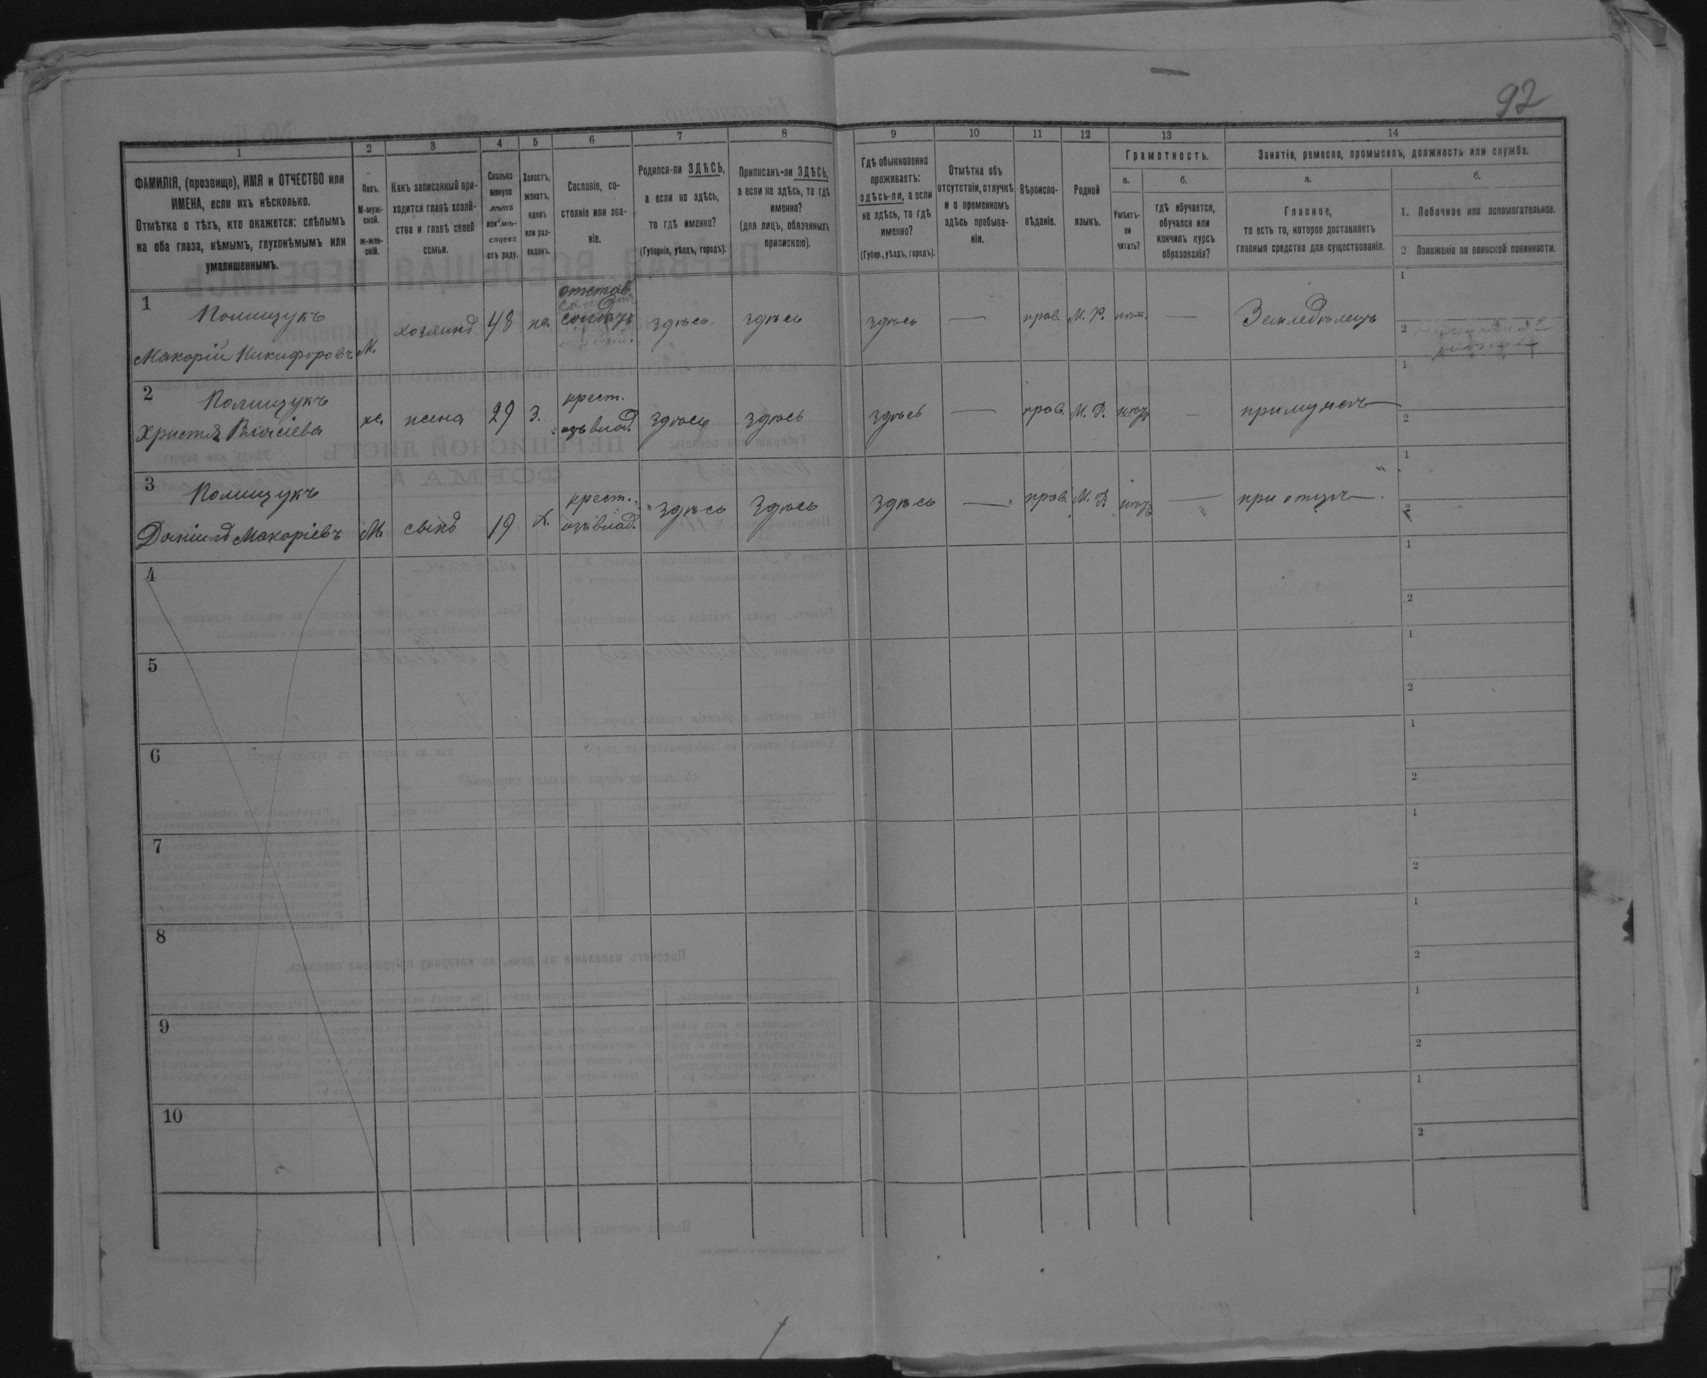 92
1
2
3
4
5
6
7
8
9
10
11
12
13
14
ФАМИЛІЯ, (прозвище), ИМЯ и ОТЧЕСТВО или
ИМЕНА, если ихъ нѣсколько.
Отмѣтка о тѣхъ, кто окажется: слѣпымъ
на оба глаза, нѣмымъ, глухонѣмымъ или
умалишеннымъ.
Полъ.
М-муж-
ской.
Ж-жен-
скій.
Какъ записанный при-
ходится главѣ хозяй-
ства и главѣ своей
семьи.
Сколько
минуло
лѣтъ
или мѣ-
сяцевъ
отъ роду.
Холостъ,
женатъ,
вдовъ
или раз-
веденъ.
Сословіе, со-
стояніе или зва-
ніе.
Родился-ли ЗДѢСЬ,
а если не здѣсь,
то гдѣ именно?
(Губернія, уѣздъ, городъ).
Приписанъ-ли ЗДѢСЬ,
а если не здѣсь, то гдѣ
именно?
(для лицъ, обязанныхъ
припискою).
Гдѣ обыкновенно
проживаетъ:
здѣсь-ли, а если
не здѣсь, то гдѣ
именно?
(Губер., уѣздъ, городъ).
Отмѣтка объ
отсутствіи, отлучкѣ
и о временномъ
здѣсь пребыва-
ніи.
Вѣроиспо-
вѣданіе.
Родной
языкъ.
Грамотность.
а.
Умѣетъ-
ли
читать?
б.
гдѣ обучается,
обучался или
кончилъ курсъ
образованія?
Занятіе, ремесло, промыселъ, должность или служба.
а.
Главное,
то есть то, которое доставляетъ
главныя средства для существованія.
б.
1. Побочное или вспомогательное.
2 Положеніе по воинской повинности.
1
Полищукъ
Макарій Никифоровъ
М.
хозяинъ
48
же.
отстав.
солдатъ
здѣсь
здѣсь
здѣсь
—
прав.
М. Р.
нѣт.
—
Земледѣлецъ
1
2
2
Полищукъ
Христя Власіева
же.
жена
29
З.
крест.
изъ влад.
здѣсь
здѣсь
здѣсь
—
прав.
М. Р.
нѣтъ
—
при мужѣ
1
2
3
Полищукъ
Даніилъ Макаріевъ
М.
сынъ
19
Х.
крест.
изъ влад.
здѣсь
здѣсь
здѣсь
—
прав.
М. Р.
нѣтъ
—
при отцѣ
1
2
4
1
2
5
1
2
6
1
2
7
1
2
8
1
2
9
1
2
10
1
2